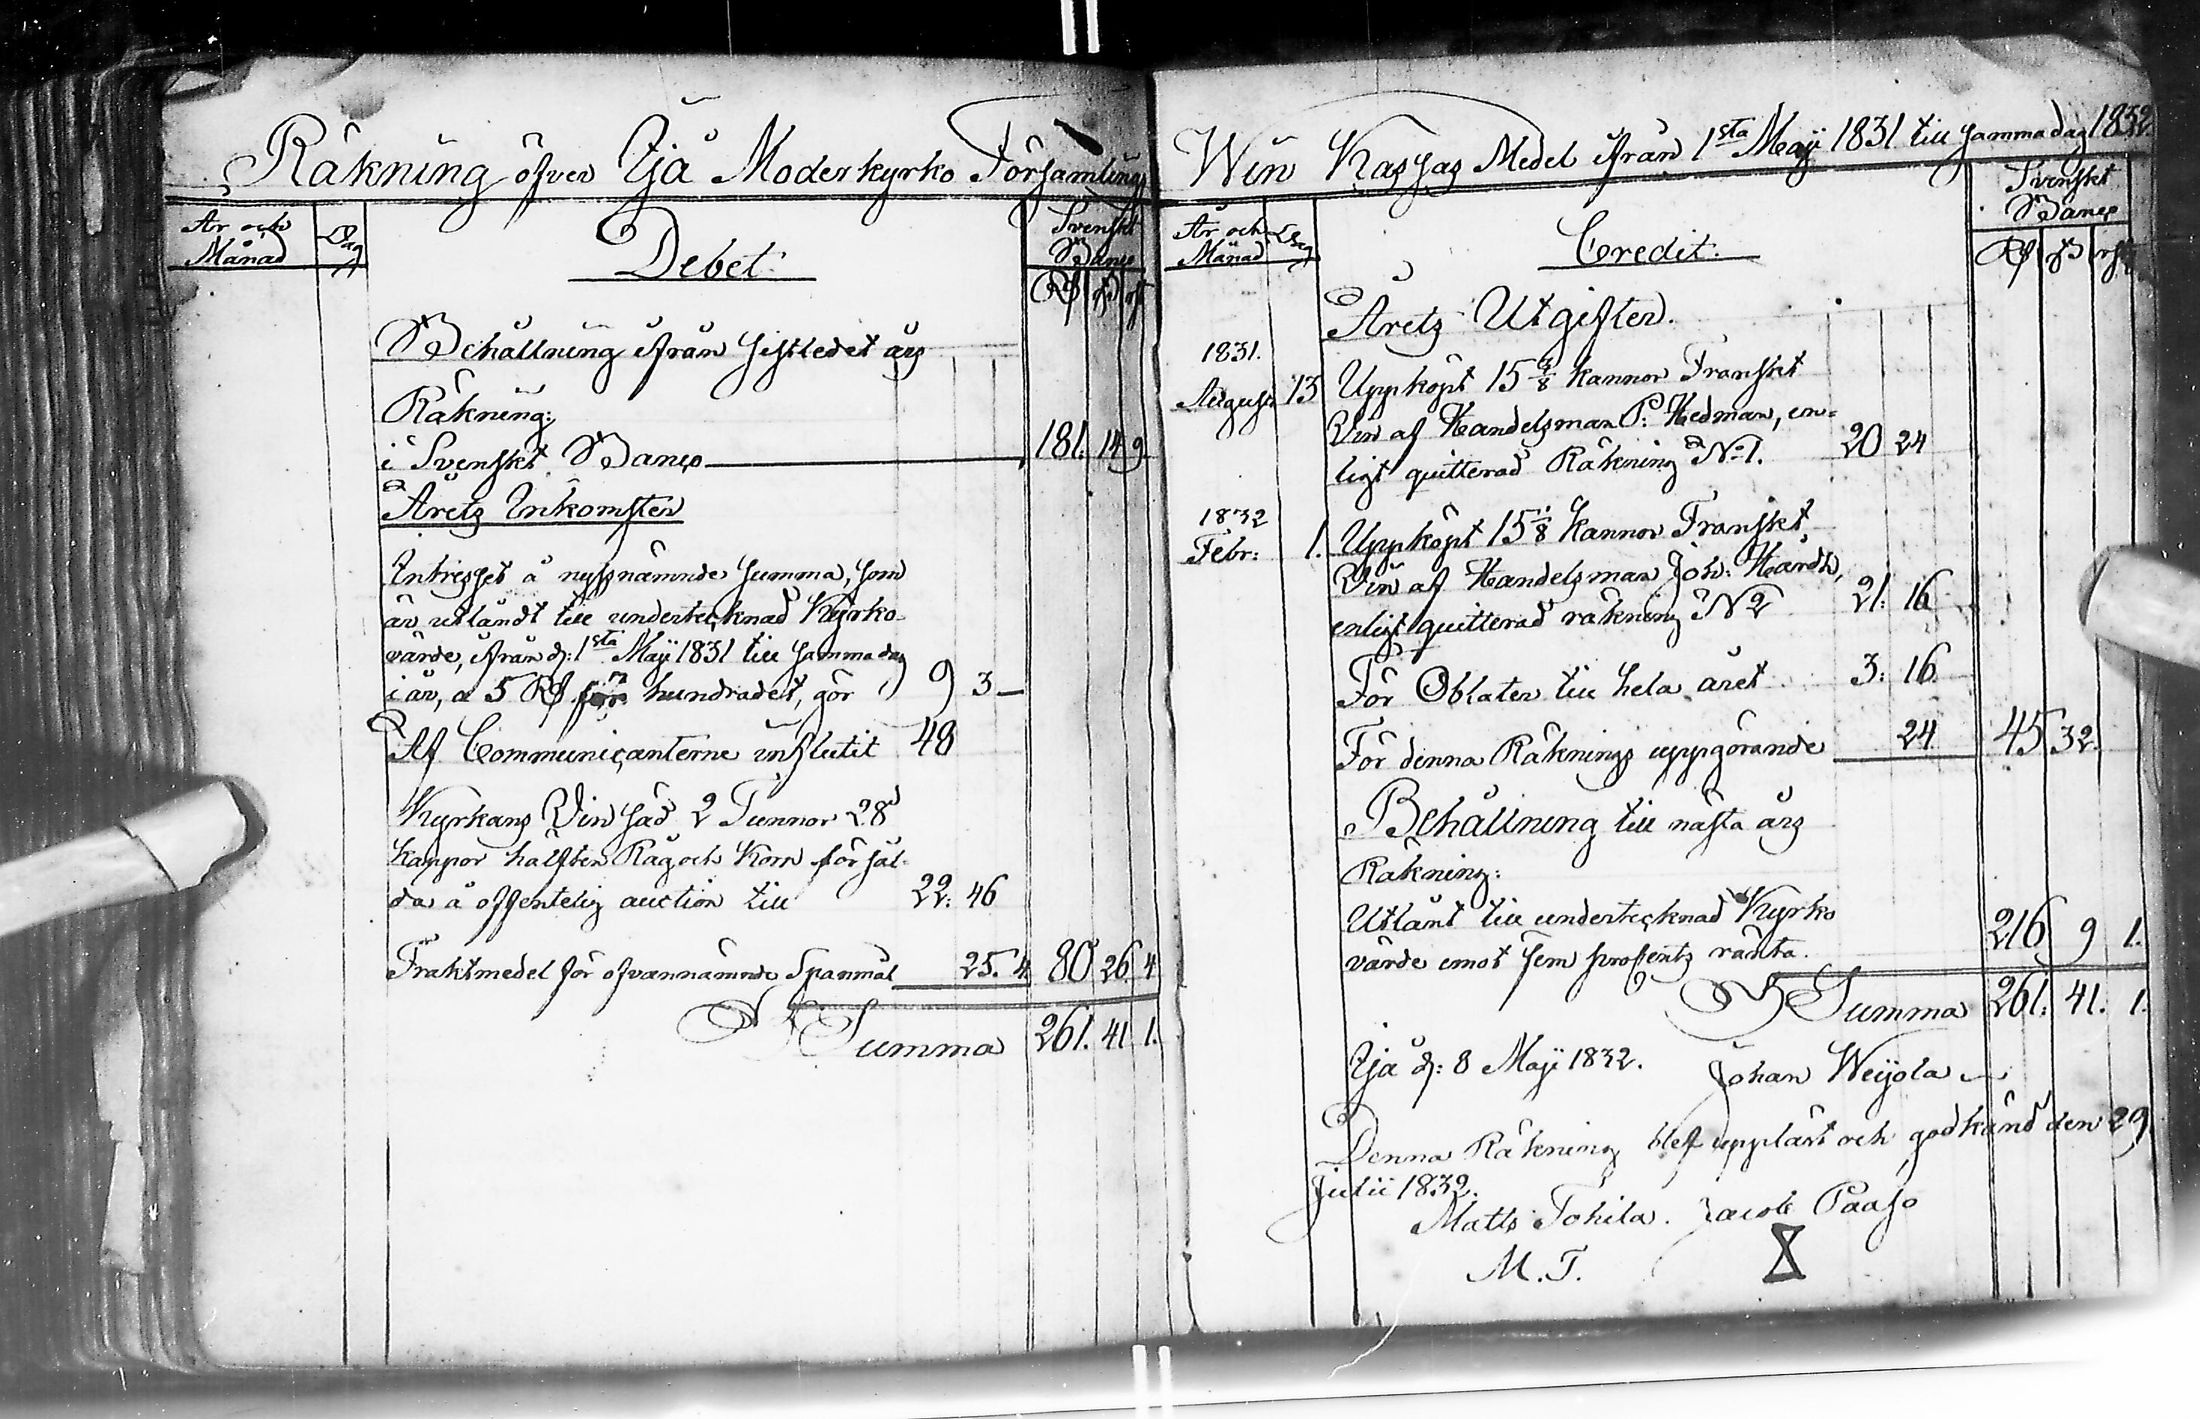 Räkning öfver Ijå Moderkyrko Församlings
År och Månad
Dag
Debet:
Svenskt Banco
Rd ß rst
Behållning ifrån sistledet års
Räkning:
i Svenskt Banco 181. 14 9
Årets Inkomster
Intresset å nyssnämnde summa, som
är utlåndt till undertecknad Kyrko-
värde, ifrån d: 1sta Maji 1831 till samma dag
i år, a 5 Rd för hundradet, gör 9 3 —
Af Communicanterne influtit 48
Kyrkans Vin säd 2 Tunnor 28
kappor hälften Råg och Korn försål-
da å offentelig auction till 22: 46
Fraktmedel för ofvannämnde Spanmål 25. 4 80 26. 4
Summa 261. 41 1.
Win Kassas Medel ifrån 1sta Maji 1831 till samma dag 1832
År och Månad
Dag
Credit:
Svenskt Banco
Rd ß rst
Årets Utgifter.
1831.
August 13 Uppköpt 15 7/8 kannor Franskt
Vin af Handelsman P: Hedman, en-
ligt quitterad Räkning No 1. 20 24
1832
Febr: 1. Uppköpt 15 1/8 kannor Franskt
Vin af Handelsman Joh: Hårdh,
enligt quitterad räkning N 2 21: 16
För Oblater till hela året 3: 16
För denna Räknings uppgörande 24 45 32.
Behållning till nästa års
Räkning:
Utlånt till undertecknad Kyrko
värde emot fem procents ränta. 216 9 1.
Summa 261: 41. 1.
Ijå d: 8 Maji 1832. Johan Weijola
Denna Räkning blef uppläst och godkänd den 29
Julii 1832.
Matts Tohila. Jacob Paaso
M. T.